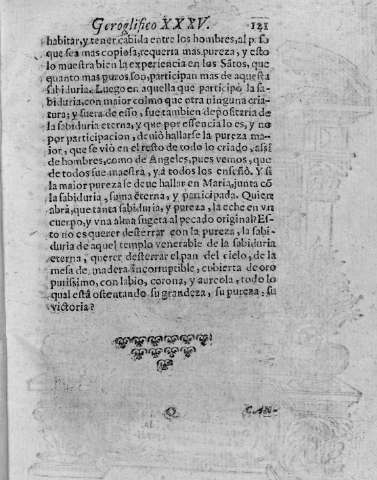 Geroglifico XXXV. 121
habitar, y tener cabida entre los hombres, al p. so
que sea mas copiosa, requeria mas pureza, y esto
lo muestra bien la experiencia en los Sãtos, que
quanto mas puros son, participan mas de aquesta
sabiduria. Luego en aquella que participò la sa-
biduria, con maior colmo que otra ninguna cria-
tura; y fuera de esso, fue tambien depositaria de
la sabiduria eterna, y que por essencia lo es, y no
por participacion, deuiò hallarse la pureza ma-
ior, que se viò en el resto de todo lo criado, assi
de hombres, como de Angeles, pues vemos, que
de todos fue maestra, y à todos los enseñò. Y si
la maior pureza se deue hallar en Maria, junta cõ
la sabiduria, suma eterna, y participada. Quien
abrà, que tanta sabiduria, y pureza, la eche en vn
cuerpo, y vna alma sugeta al pecado original? Es-
to no es querer desterrar con la pureza, la sabi-
duria de aquel templo venerable de la sabiduria
eterna, querer desterrar el pan del cielo, de la
mesa de madera incorruptible, cubierta de oro
purissimo, con labio, corona, y aureola, todo lo
qual està ostentando su grandeza, su pureza, su
victoria?
Q